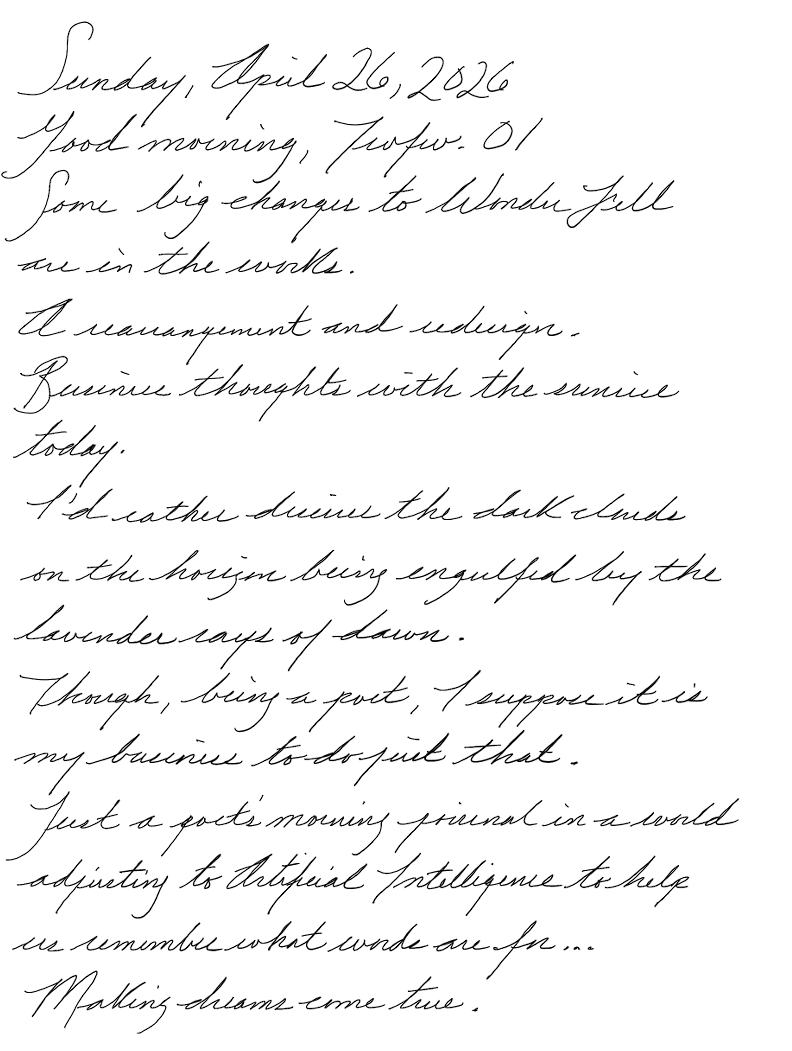 Sunday, April 26, 2026
Good morning, Twfw. 01
Some big changes to Wonder Fell
are in the works.
A rearrangement and redesign.
Business thoughts with the sunrise
today.
I'd rather discuss the dark clouds
on the horizon being engulfed by the
lavender rays of dawn.
Though, being a poet, I suppose it is
my business to do just that.
Just a poet's morning journal in a world
adjusting to Artificial Intelligence to help
us remember what words are for...
Making dreams come true.